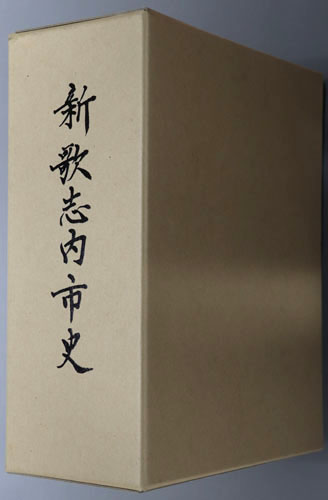 新歌志内市史